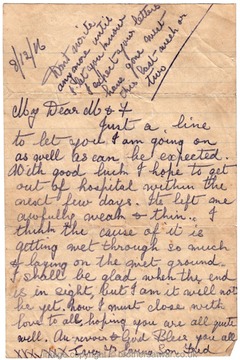 8/12/16
Dont write
anymore until
I let you know
I expect your letters
have gone west
this last week or
two
My Dear M & F
Just a line
to let you I am going on
as well as can be expected.
With good luck I hope to get
out of hospital within the
next few days. Its left me
awfully weak & thin. I
think the cause of it is
getting wet through so much
& laying on the wet ground
I shall be glad when the end
is in sight, but I am it will not
be yet. now I must close with
love to all, hoping you are all quite
well. Au revoir & God Bless you all
xxx Your Loving Son